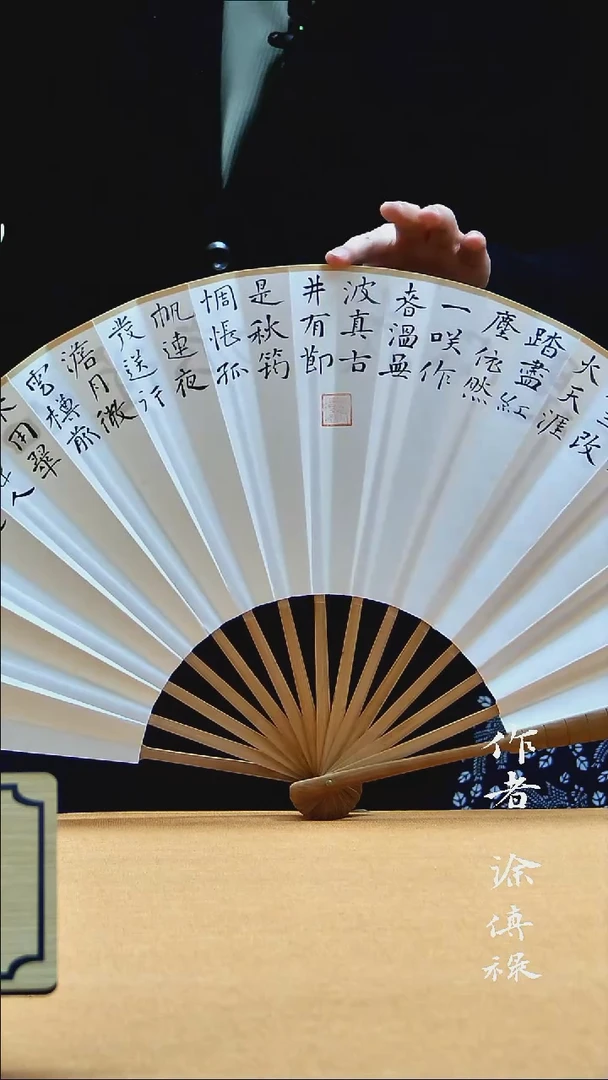 三改
火天涯
踏盡紅
塵依然
一咲作
春溫無
波真古
井有節
是秋筠
惆悵孤
帆連夜
發送行
澹月微
雲樽前
不用翠
人
作者
涂傳祿